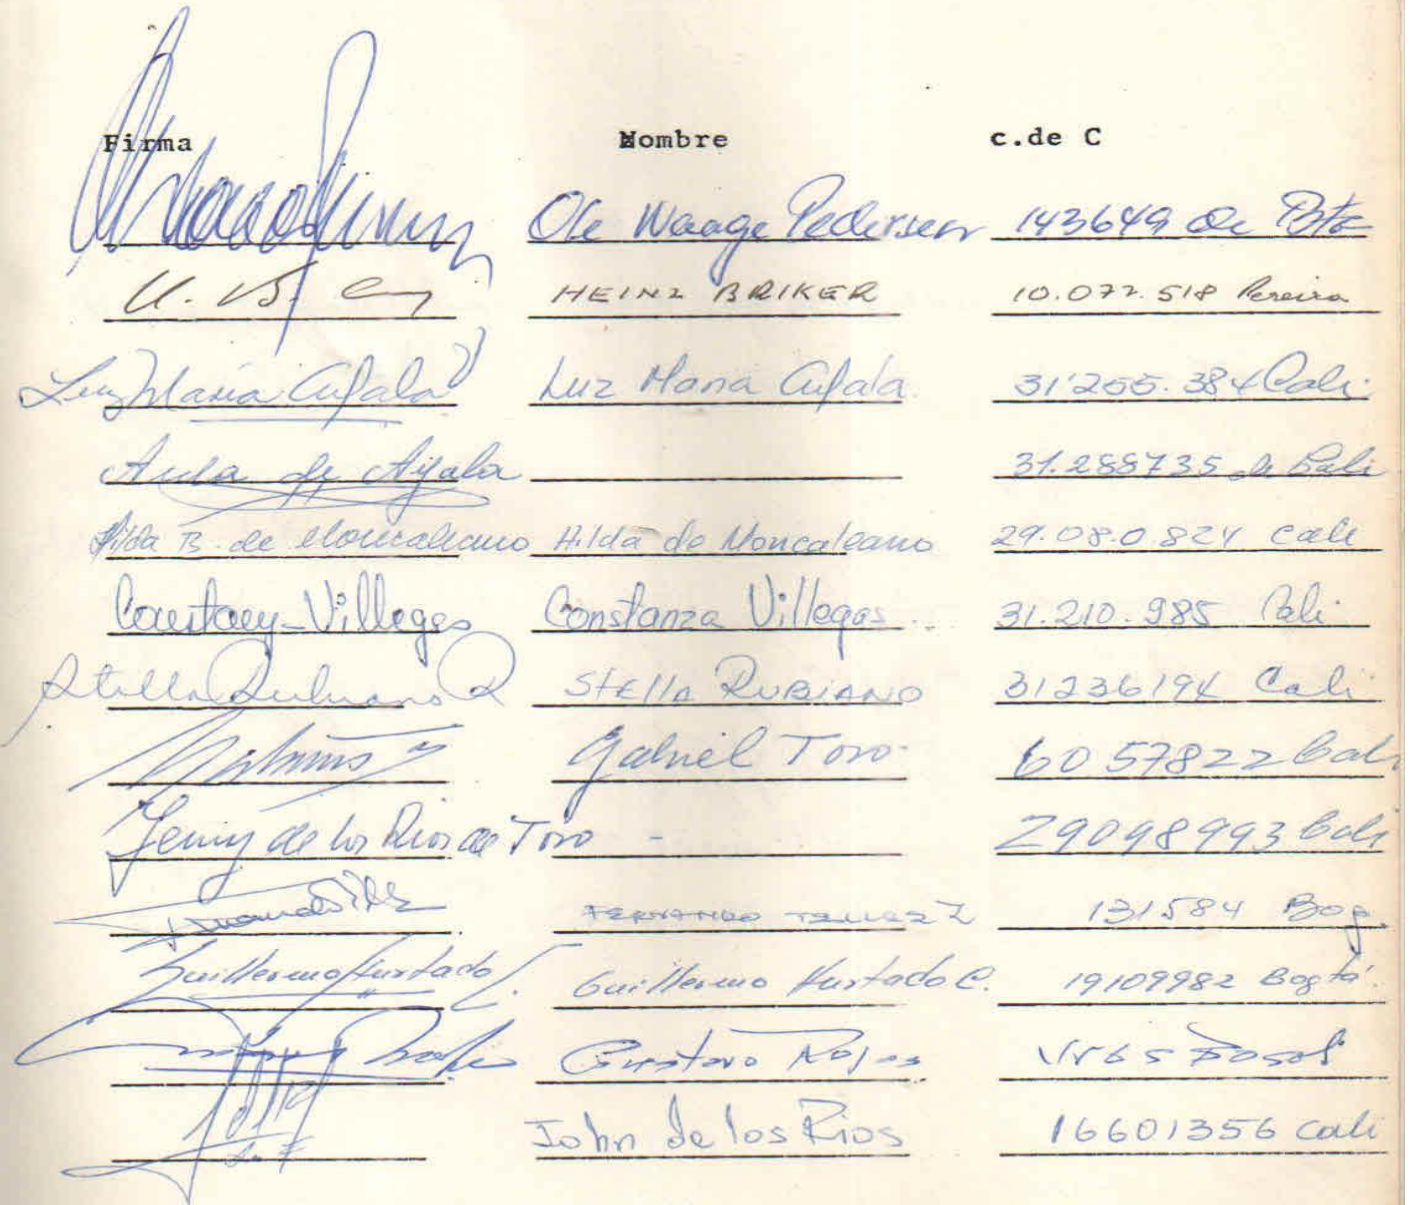 Firma Nombre c.de C
Ole Waage Pedersen 143649 de Bta
HEINZ BRIKER 10.077.518 Pereira
Luz Maria Luz Maria 31'255.384 Cali
de Ayala 31.288735 de Cali
Hilda B. de Moncaleano Hilda de Moncaleano 29.080.824 Cali
Villegas Constanza Villegas 31.210.985 Cali
Stella Rubiano R STELLA RUBIANO 31236194 Cali
Gabriel Toro 6057822 Cali
Jenny de los Rios de Toro - 29098993 Cali
FERNANDO TELLEZ 131584 Bog.
Guillermo Hurtado C. Guillermo Hurtado C. 19109982 Bogtá.
Gustavo Rojas
John de los Rios 16601356 Cali